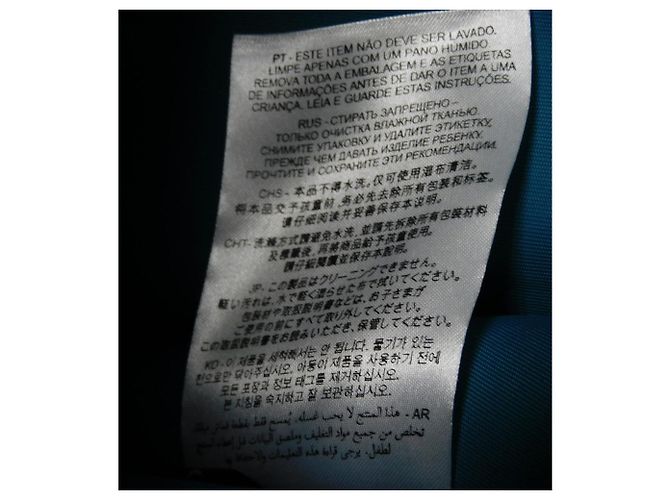 PT - ESTE ITEM NÃO DEVE SER LAVADO.
LIMPE APENAS COM UM PANO HUMIDO
REMOVA TODA A EMBALAGEM E AS ETIQUETAS
DE INFORMAÇÕES ANTES DE DAR O ITEM A UMA
CRIANÇA. LEIA E GUARDE ESTAS INSTRUÇÕES.
RUS - СТИРАТЬ ЗАПРЕЩЕНО –
ТОЛЬКО ОЧИСТКА ВЛАЖНОЙ ТКАНЬЮ.
СНИМИТЕ УПАКОВКУ И УДАЛИТЕ ЭТИКЕТКУ,
ПРЕЖДЕ ЧЕМ ДАВАТЬ ИЗДЕЛИЕ РЕБЕНКУ.
ПРОЧТИТЕ И СОХРАНИТЕ ЭТИ РЕКОМЕНДАЦИИ.
CHS - 本品不得水洗。仅可使用湿布清洁。
将本品交予孩童前,务必先去除所有包装和标签。
请仔细阅读并妥善保存本说明。
CHT- 洗滌方式請避免水洗,並請先拆除所有包裝材料
及標籤後,再將商品給予孩童使用。
請仔細閱讀並保存本說明。
JP- この製品はクリーニングできません。
軽い汚れは、水で軽く濡らせた布で拭いてください。
包装材や取扱説明書などは、お子さまが
ご使用の前にすべて取り外してください。
この取扱説明書をお読みいただき、保管してください。
KO - 이 제품을 세척해서는 안 됩니다. 물기가 있는
천으로만 닦아주십시오. 아동이 제품을 사용하기 전에
모든 포장과 정보 태그를 제거하십시오.
본 지침을 숙지하고 잘 보관하십시오.
AR - هذا المنتج لا يجب غسله. يُمسح فقط بقطعة قماش
تخلص من جميع مواد التغليف وملصق البيانات قبل إعطاء المنتج
لطفل. يرجى قراءة هذه التعليمات والاحتفاظ بها